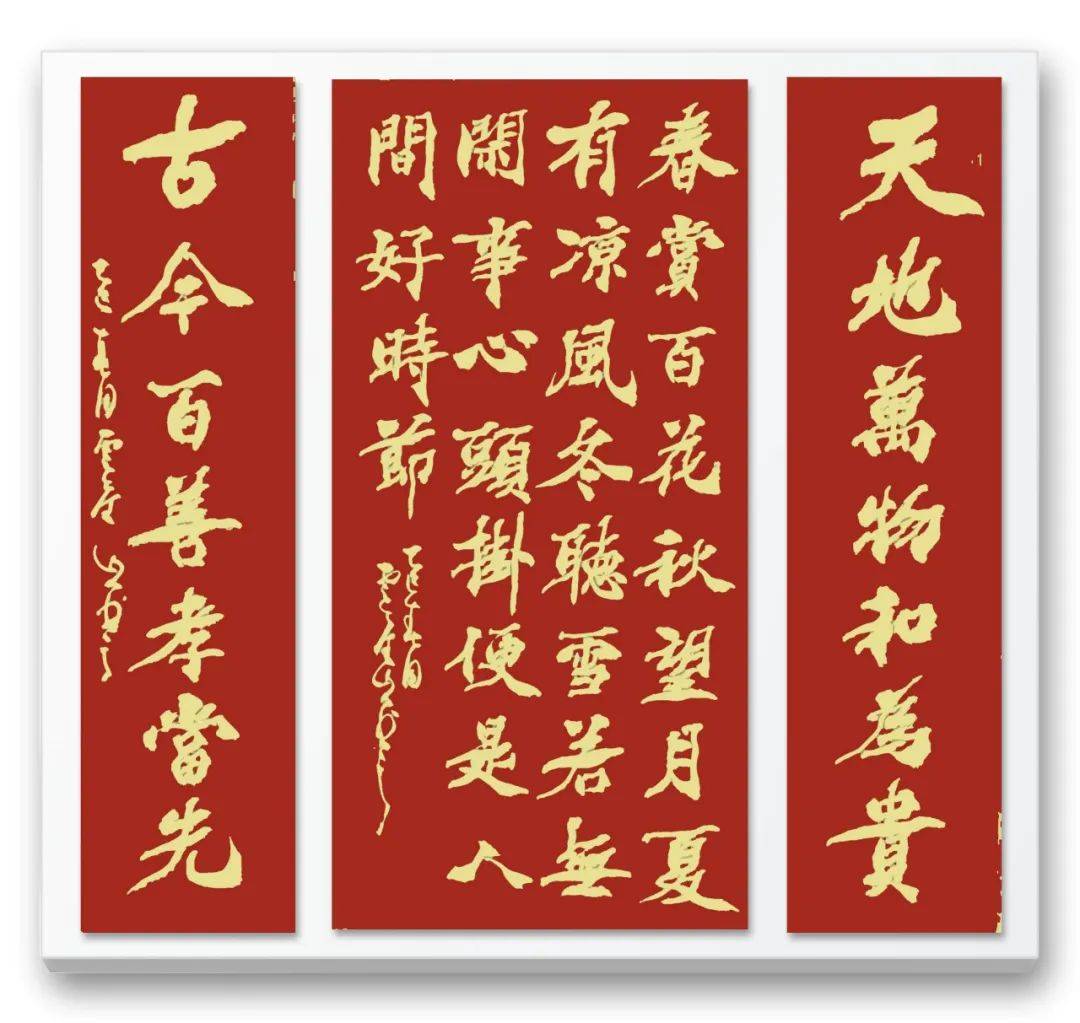 天地萬物和為貴
春賞百花秋望月夏
有凉風冬聽雪若無
閑事心頭掛便是人
間好時節
古今百善孝當先